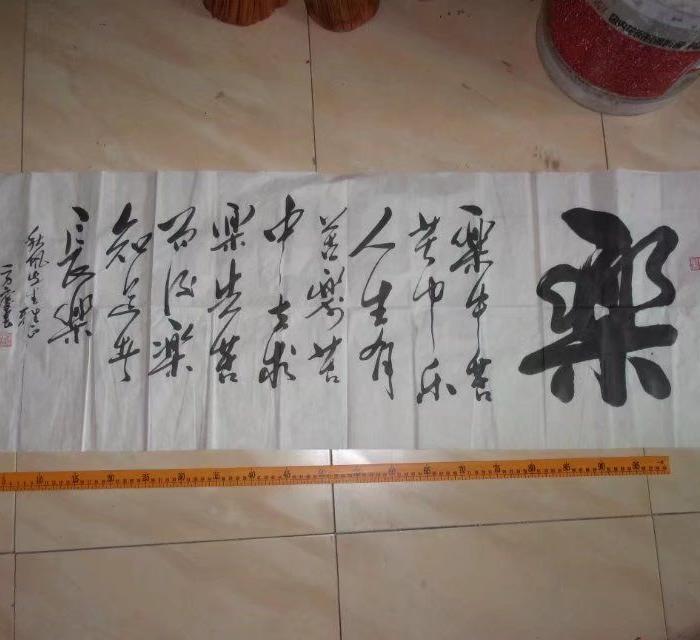 樂
樂中苦
苦中乐
人生有
苦樂苦
中去求
樂先苦
而後樂
知足
長樂
秋風先生正